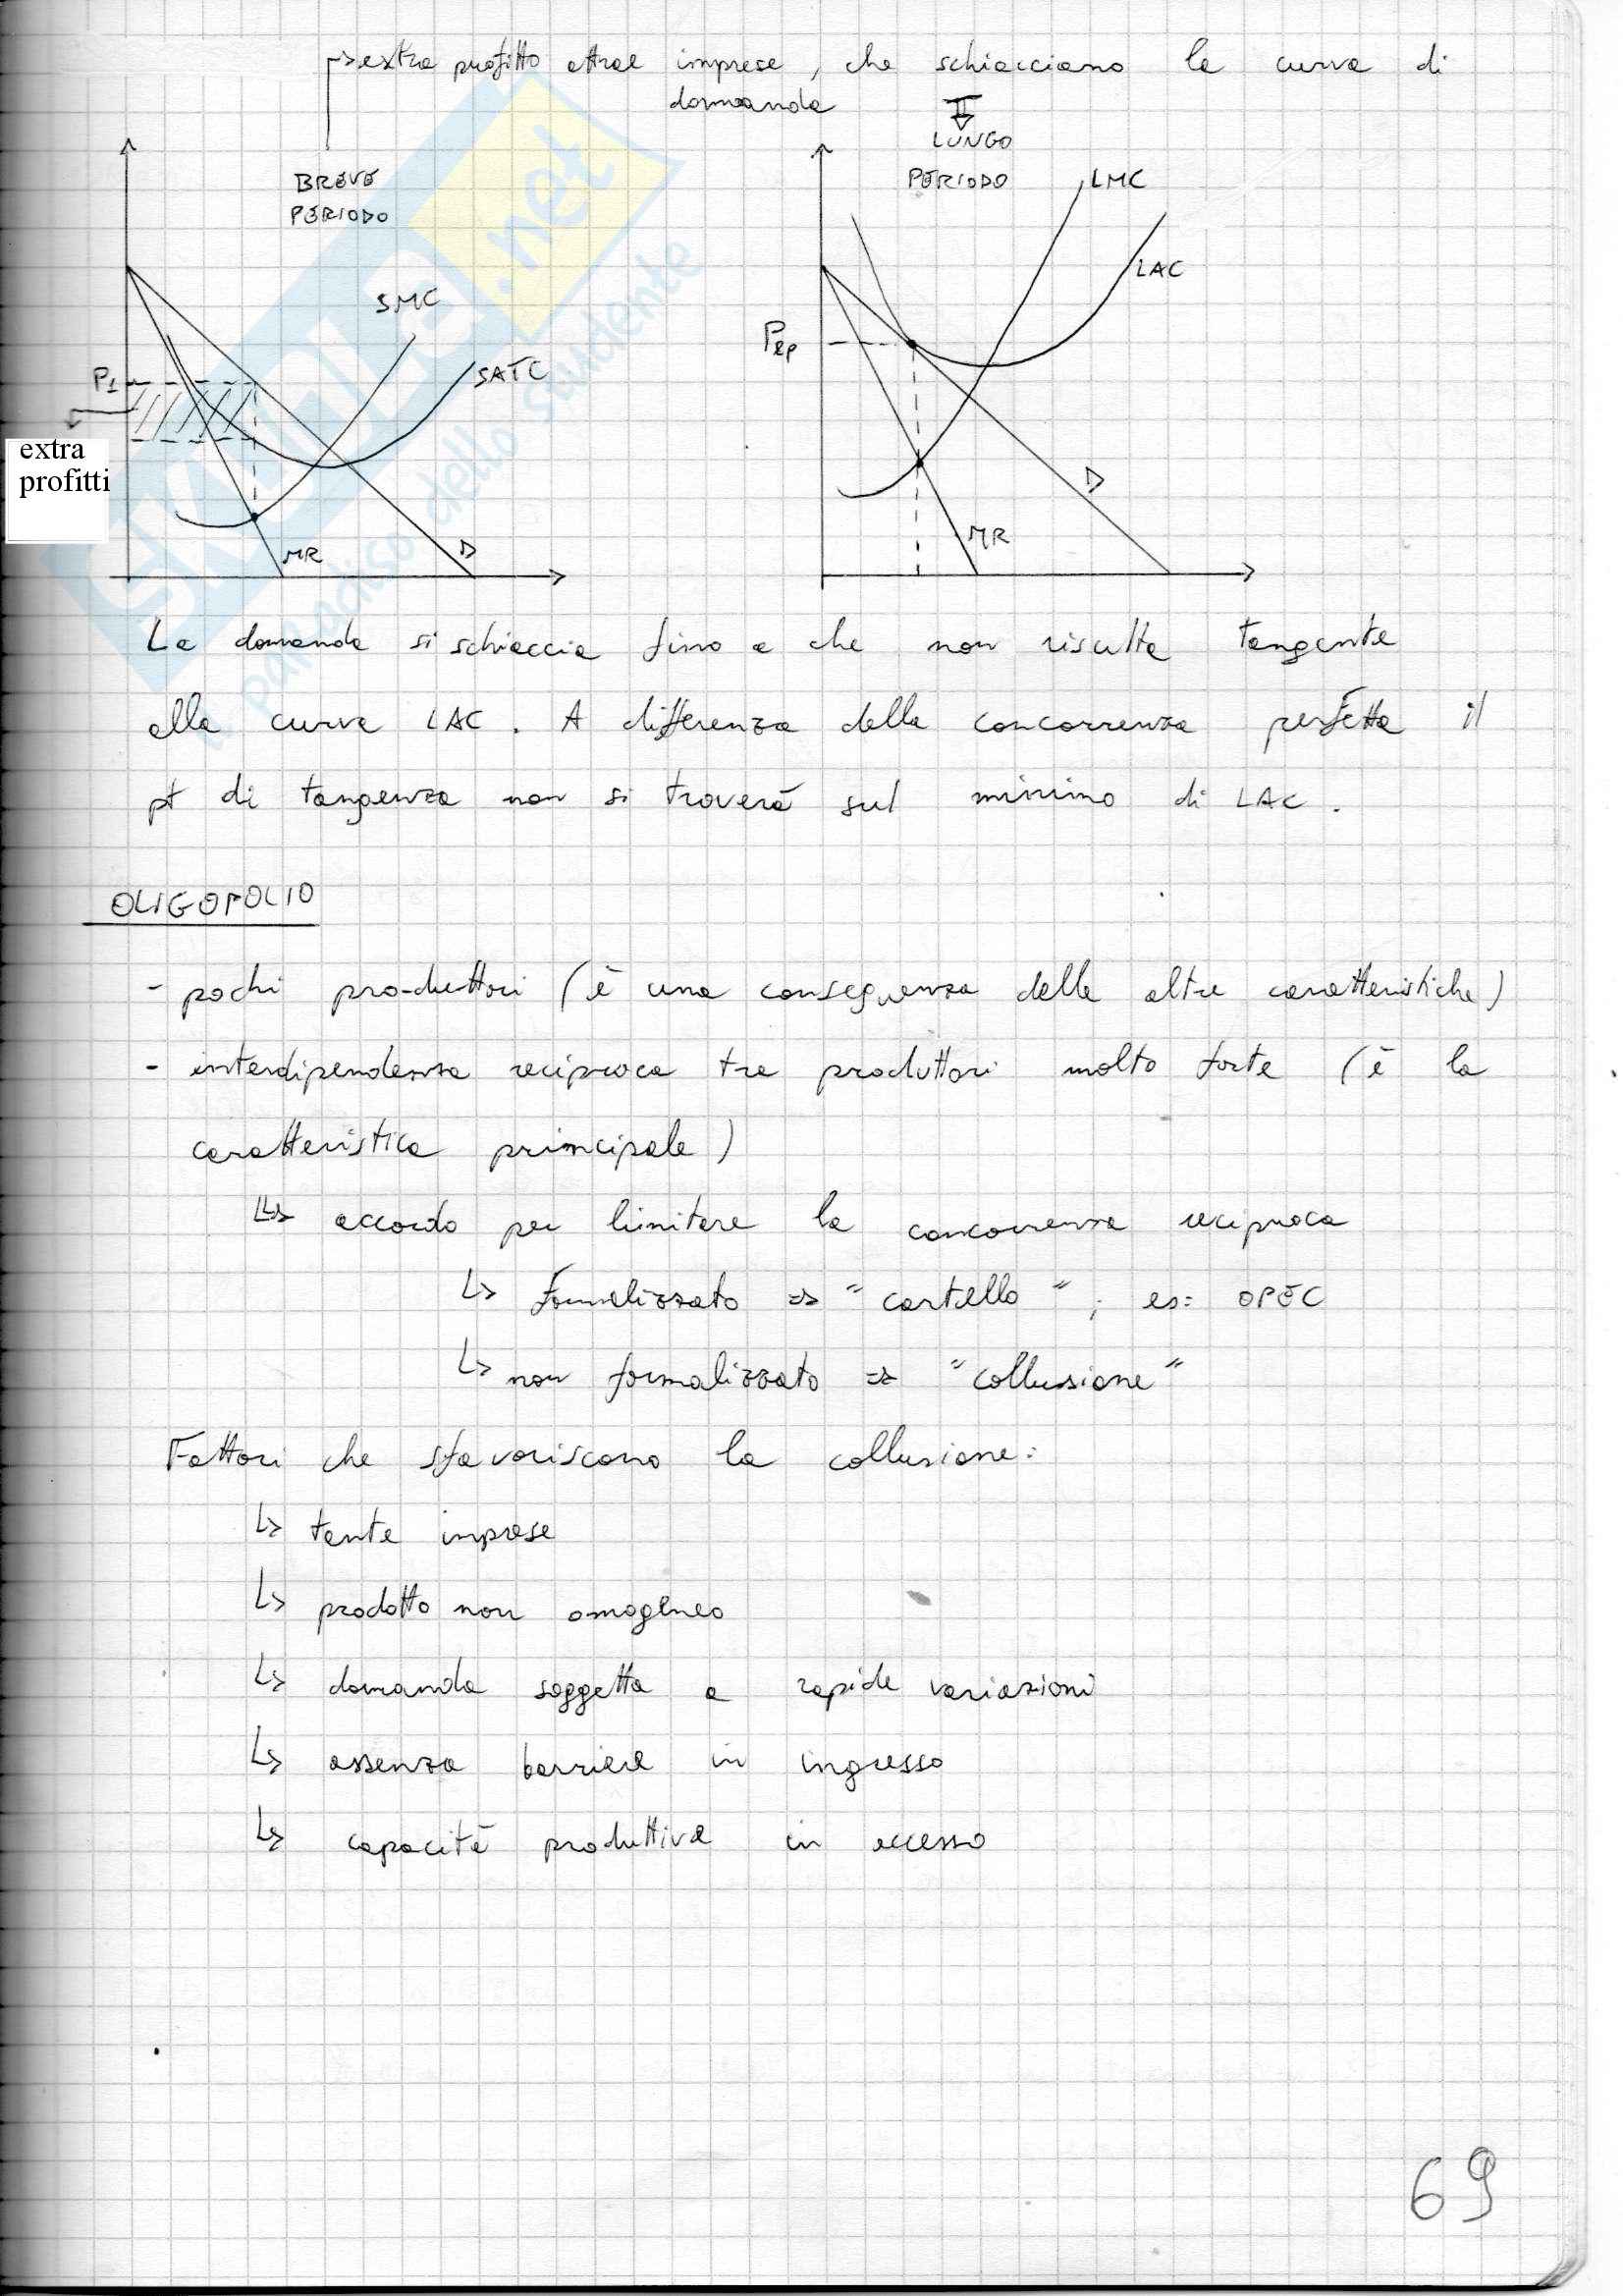 extra profitto attrae imprese, che schiacciano la curva di
domanda
BREVE
PERIODO
LUNGO
PERIODO
LMC
LAC
SMC
SATC
P1
extra
profitti
MR
D
Plp
D
MR
La domanda si schiaccia fino a che non risulta tangente
alla curva LAC. A differenza della concorrenza perfetta il
pt di tangenza non si troverà sul minimo di LAC.
OLIGOPOLIO
- pochi produttori (è una conseguenza delle altre caratteristiche)
- interdipendenza reciproca tra produttori molto forte (è la
caratteristica principale)
↳ accordo per limitare la concorrenza reciproca
↳ formalizzato => "cartello"; es: OPEC
↳ non formalizzato => "collusione"
Fattori che sfavoriscono la collusione:
↳ tante imprese
↳ prodotto non omogeneo
↳ domanda soggetta a rapide variazioni
↳ assenza barriere in ingresso
↳ capacità produttiva in eccesso
69
.net
dello studente